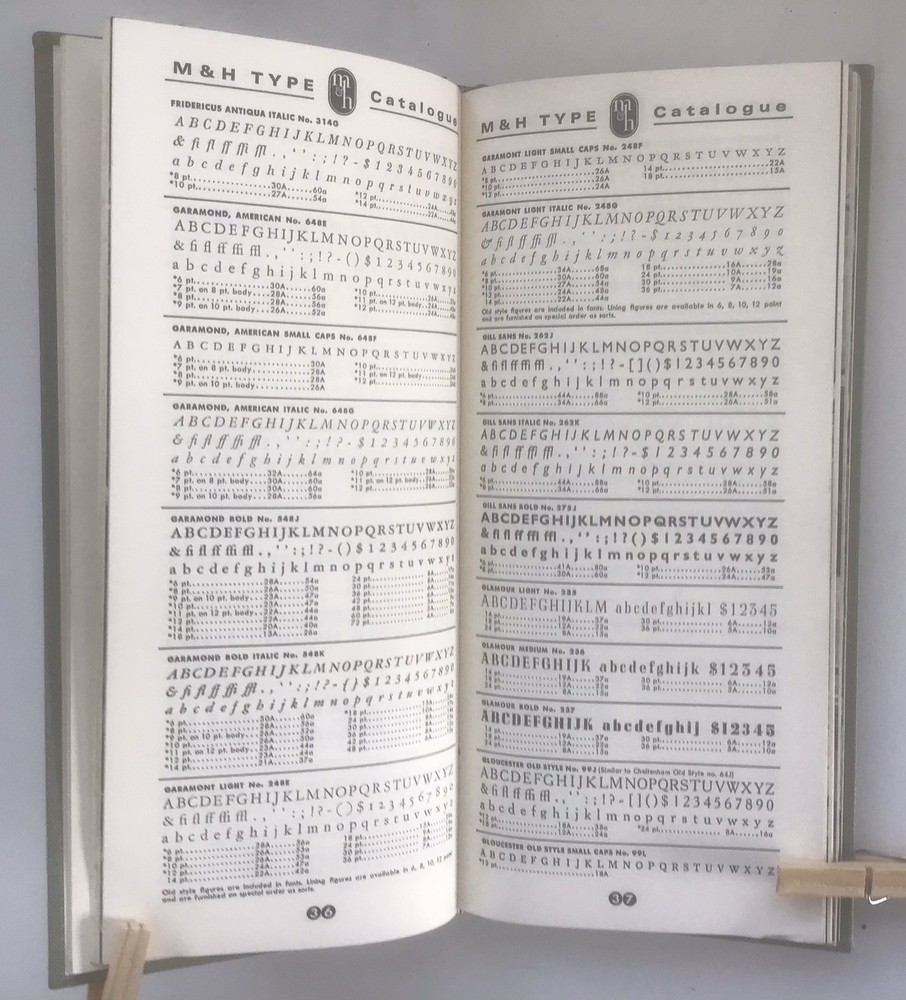 M & H TYPE m & h Catalogue
FRIDERICUS ANTIQUA ITALIC No. 314G
ABCDEFGHIJKLMNOPQRSTUVWXYZ
& fi fl ff ffi ffl . , ‘ ’ : ; ! ? - $ 1 2 3 4 5 6 7 8 9 0
a b c d e f g h i j k l m n o p q r s t u v w x y z
*8 pt. 30A 60a *12 pt.
*10 pt. 27A 54a *14 pt.
GARAMOND, AMERICAN No. 648E
ABCDEFGHIJKLMNOPQRSTUVWXYZ
& fi fl ff ffi ffl . , ‘ ’ : ; ! ? - ( ) $ 1 2 3 4 5 6 7 8 9 0
a b c d e f g h i j k l m n o p q r s t u v w x y z
*6 pt. 30A 60a *10 pt.
*7 pt. on 8 pt. body 28A 56a *11 pt. on 12 pt. body
*8 pt. 28A 56a *12 pt.
*9 pt. on 10 pt. body 26A 52a
GARAMOND, AMERICAN SMALL CAPS No. 648F
ABCDEFGHIJKLMNOPQRSTUVWXYZ
*6 pt. 30A *10 pt.
*7 pt. on 8 pt. body 28A *11 pt. on 12 pt. body
*8 pt. 28A *12 pt.
*9 pt. on 10 pt. body 26A
GARAMOND, AMERICAN ITALIC No. 648G
ABCDEFGHIJKLMNOPQRSTUVWXYZ
& fi fl ff ffi ffl . , ‘ ’ : ; ! ? - $ 1 2 3 4 5 6 7 8 9 0
a b c d e f g h i j k l m n o p q r s t u v w x y z
*6 pt. 32A 64a *10 pt.
*7 pt. on 8 pt. body 30A 60a *11 pt. on 12 pt. body
*8 pt. 30A 60a *12 pt.
*9 pt. on 10 pt. body 28A 56a
GARAMOND BOLD No. 548J
ABCDEFGHIJKLMNOPQRSTUVWXYZ
& fi fl ff ffi ffl . , ‘ ’ : ; ! ? - ( ) $ 1 2 3 4 5 6 7 8 9 0
a b c d e f g h i j k l m n o p q r s t u v w x y z
*6 pt. 28A 24 pt.
*8 pt. 30 pt.
*9 pt. on 10 pt. body 36 pt.
*10 pt. 42 pt.
*11 pt. on 12 pt. body 48 pt.
*12 pt. 60 pt.
*14 pt. 72 pt.
*18 pt. 13A 26a
GARAMOND BOLD ITALIC No. 548K
ABCDEFGHIJKLMNOPQRSTUVWXYZ
& fi fl ff ffi ffl . , ‘ ’ : ; ! ? - ( ) $ 1 2 3 4 5 6 7 8 9 0
a b c d e f g h i j k l m n o p q r s t u v w x y z
*6 pt. 30A 60a *18 pt.
*8 pt. 24 pt.
*9 pt. on 10 pt. body 30 pt.
*10 pt. 36 pt.
*11 pt. on 12 pt. body 42 pt.
*12 pt. 48 pt.
*14 pt.
GARAMONT LIGHT No. 248E
ABCDEFGHIJKLMNOPQRSTUVWXYZ
& fi fl ff ffi ffl . , ‘ ’ : ; ! ? - ( ) $ 1 2 3 4 5 6 7 8 9 0
a b c d e f g h i j k l m n o p q r s t u v w x y z
*6 pt. 28A 56a 18 pt.
*8 pt. 24 pt.
*10 pt. 30 pt.
*12 pt. 36 pt.
14 pt.
Old style figures are included in fonts. Lining figures are available in 6, 8, 10, 12 point
and are furnished on special order as sorts.
36
M & H TYPE m & h Catalogue
GARAMONT LIGHT SMALL CAPS No. 248F
ABCDEFGHIJKLMNOPQRSTUVWXYZ
*8 pt. 26A 14 pt. 22A
*10 pt. 26A 18 pt. 15A
*12 pt. 24A
GARAMONT LIGHT ITALIC 248G
ABCDEFGHIJKLMNOPQRSTUVWXYZ
& fi fl ff ffi ffl . , ‘ ’ : ; ! ? - $ 1 2 3 4 5 6 7 8 9 0
a b c d e f g h i j k l m n o p q r s t u v w x y z
*6 pt. 34A 68a 18 pt. 16A 28a
*8 pt. 30A 60a 24 pt. 10A 19a
*10 pt. 27A 54a 30 pt. 9A 16a
*12 pt. 36 pt. 7A 12a
14 pt. 22A 44a
Old style figures are included in fonts. Lining figures are available in 6, 8, 10, 12 point
and are furnished on special order as sorts.
GILL SANS No. 262J
ABCDEFGHIJKLMNOPQRSTUVWXYZ
& fi fl ff ffi ffl . , ‘ ’ : ; ! ? - [ ] ( ) $ 1 2 3 4 5 6 7 8 9 0
a b c d e f g h i j k l m n o p q r s t u v w x y z
*6 pt. 44A 88a *10 pt. 28A 58a
*8 pt. 34A 66a *12 pt. 26A 51a
GILL SANS ITALIC No. 262K
ABCDEFGHIJKLMNOPQRSTUVWXYZ
& fi fl ff ffi ffl . , ‘ ’ : ; ! ? - $ 1 2 3 4 5 6 7 8 9 0
a b c d e f g h i j k l m n o p q r s t u v w x y z
*6 pt. 44A 88a *10 pt. 28A 58a
*8 pt. 34A 66a *12 pt. 26A 51a
GILL SANS BOLD No. 275J
ABCDEFGHIJKLMNOPQRSTUVWXYZ
& fi fl ff ffi ffl . , ‘ ’ : ; ! ? - $ 1 2 3 4 5 6 7 8 9 0
a b c d e f g h i j k l m n o p q r s t u v w x y z
*6 pt. 41A 80a *10 pt. 26A 52a
*8 pt. 30A 60a *12 pt. 24A 47a
GLAMOUR LIGHT No. 235
ABCDEFGHIJKLM abcdefghijkl $12345
14 pt. 19A 37a 30 pt. 6A 12a
18 pt. 36 pt. 5A 10a
24 pt. 8A
GLAMOUR MEDIUM No. 236
ABCDEFGHIJK abcdefghijk $12345
14 pt. 19A 37a 30 pt. 6A 12a
18 pt. 36 pt. 5A 10a
24 pt. 8A
GLAMOUR BOLD No. 237
ABCDEFGHIJK abcdefghij $12345
14 pt. 19A 37a 30 pt. 6A 12a
18 pt. 36 pt. 5A 10a
24 pt. 8A
GLOUCESTER OLD STYLE No. 99J (Similar to Cheltenham Old Style no. 64J)
ABCDEFGHIJKLMNOPQRSTUVWXYZ
& fi fl ff ffi ffl . , ‘ ’ : ; ! ? - [ ] ( ) $ 1 2 3 4 5 6 7 8 9 0
a b c d e f g h i j k l m n o p q r s t u v w x y z
*12 pt. 18A 38a *24 pt. 8A 16a
*18 pt. 12A
GLOUCESTER OLD STYLE SMALL CAPS No. 99L
ABCDEFGHIJKLMNOPQRSTUVWXYZ
*12 pt. 18A
37